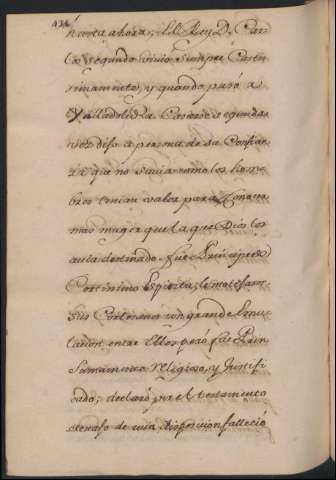 434
hasta ahora; el Rey D. Car
los segundo vivió siempre Casti
simamente, y quando pasó a
Valladolid a Casarse segunda
vez dijo a persona de su Confian
za que no savia como los hom
bres tenian valor para Conocer
mas muger que la que Dios los
avia destinado fue Principe de
Cortisimo espiritu,
sus Cortesanos con grande emu
lacion entre ellos pero fue Prin
Sumamente religioso, y Justifi
cado; declaró por el testamento
de suia disposicion fallecio